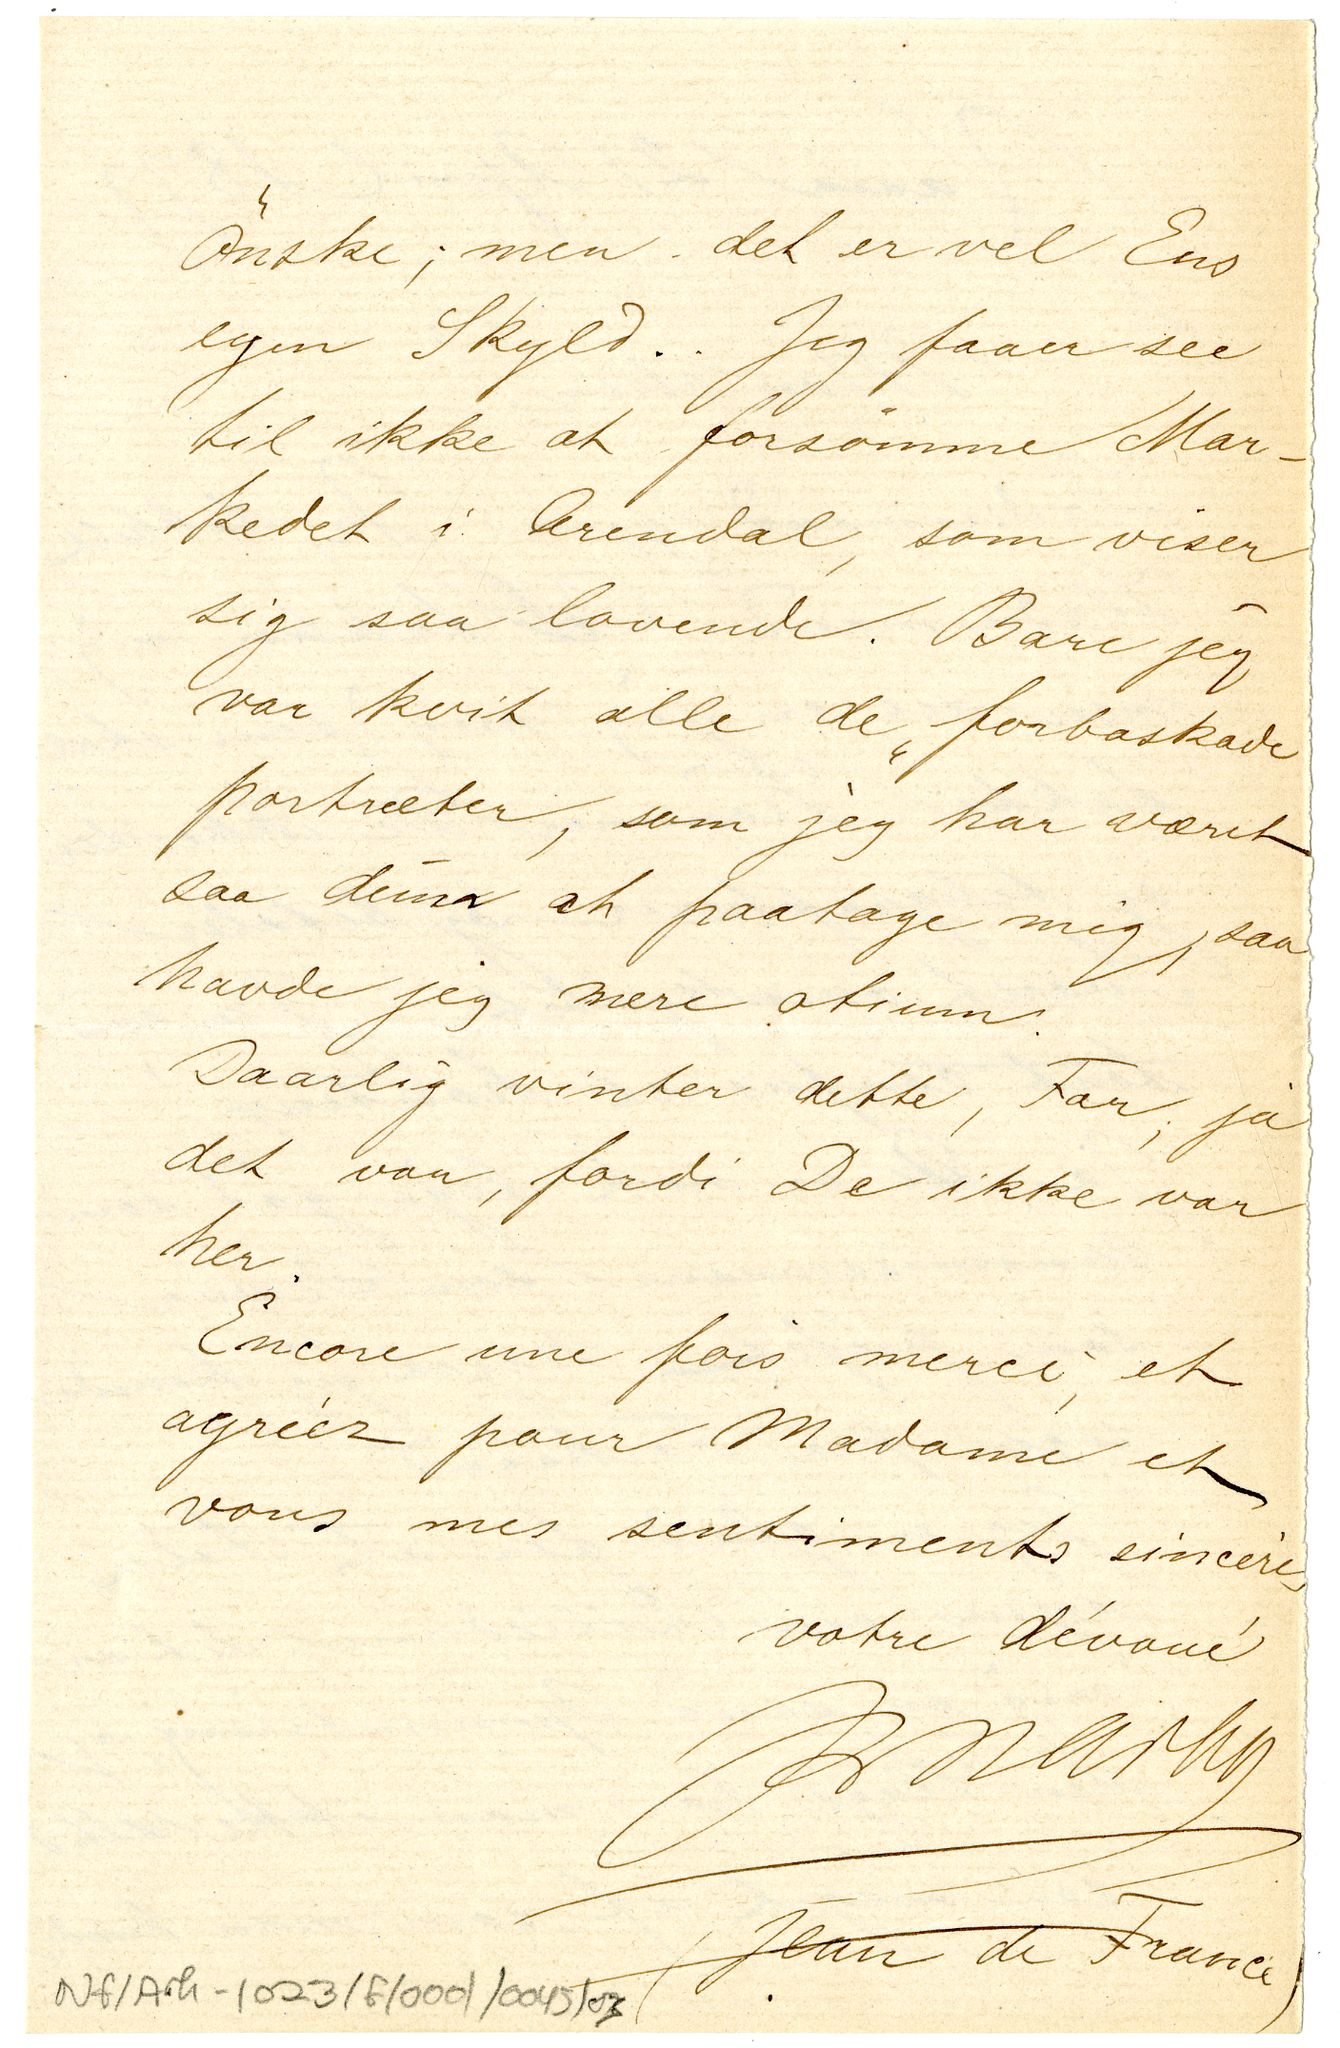 Önske; men det er vel Ens
egen Skyld.. Jeg faaer see
til ikke at forsömme Mar-
kedet i Arendal, som viser
sig saa lovende. Bare jeg
var kvit alle de „forbaskade“
portræter, som jeg har været
saa dum at paatage mig, saa
havde jeg mere otium.
Daarlig vinter dette, Far, ja
det var, fordi De ikke var
her.
Encore une fois merci, et
agréez pour Madame et
vous mes sentiments sincères
votre dévoué
(Jean de France)
NF/Ark-1023/F/0001/0045/03